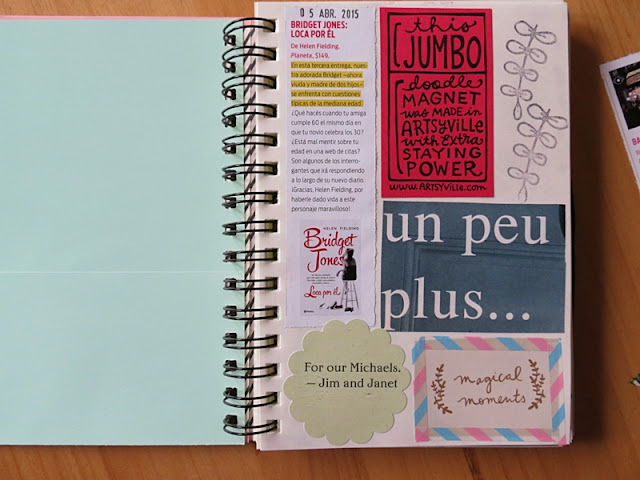 0 5 ABR. 2015
BRIDGET JONES:
LOCA POR ÉL
De Helen Fielding.
Planeta, $149.
En esta tercera entrega, nues-
tra adorada Bridget –ahora
viuda y madre de dos hijos–
se enfrenta con cuestiones
típicas de la mediana edad.
¿Qué hacés cuando tu amiga
cumple 60 el mismo día en
que tu novio celebra los 30?
¿Está mal mentir sobre tu
edad en una web de citas?
Son algunos de los interro-
gantes que irá respondiendo
a lo largo de su nuevo diario.
¡Gracias, Helen Fielding, por
haberle dado vida a este
personaje maravilloso!
HELEN FIELDING
Bridget
Jones
Loca por él
this
JUMBO
doodle
MAGNET
was MADE in
ARTSYVILLE
with EXTRA
STAYING
POWER.
www.ARTSYVILLE.com
un peu
plus...
For our Michaels.
— Jim and Janet
magical
moments